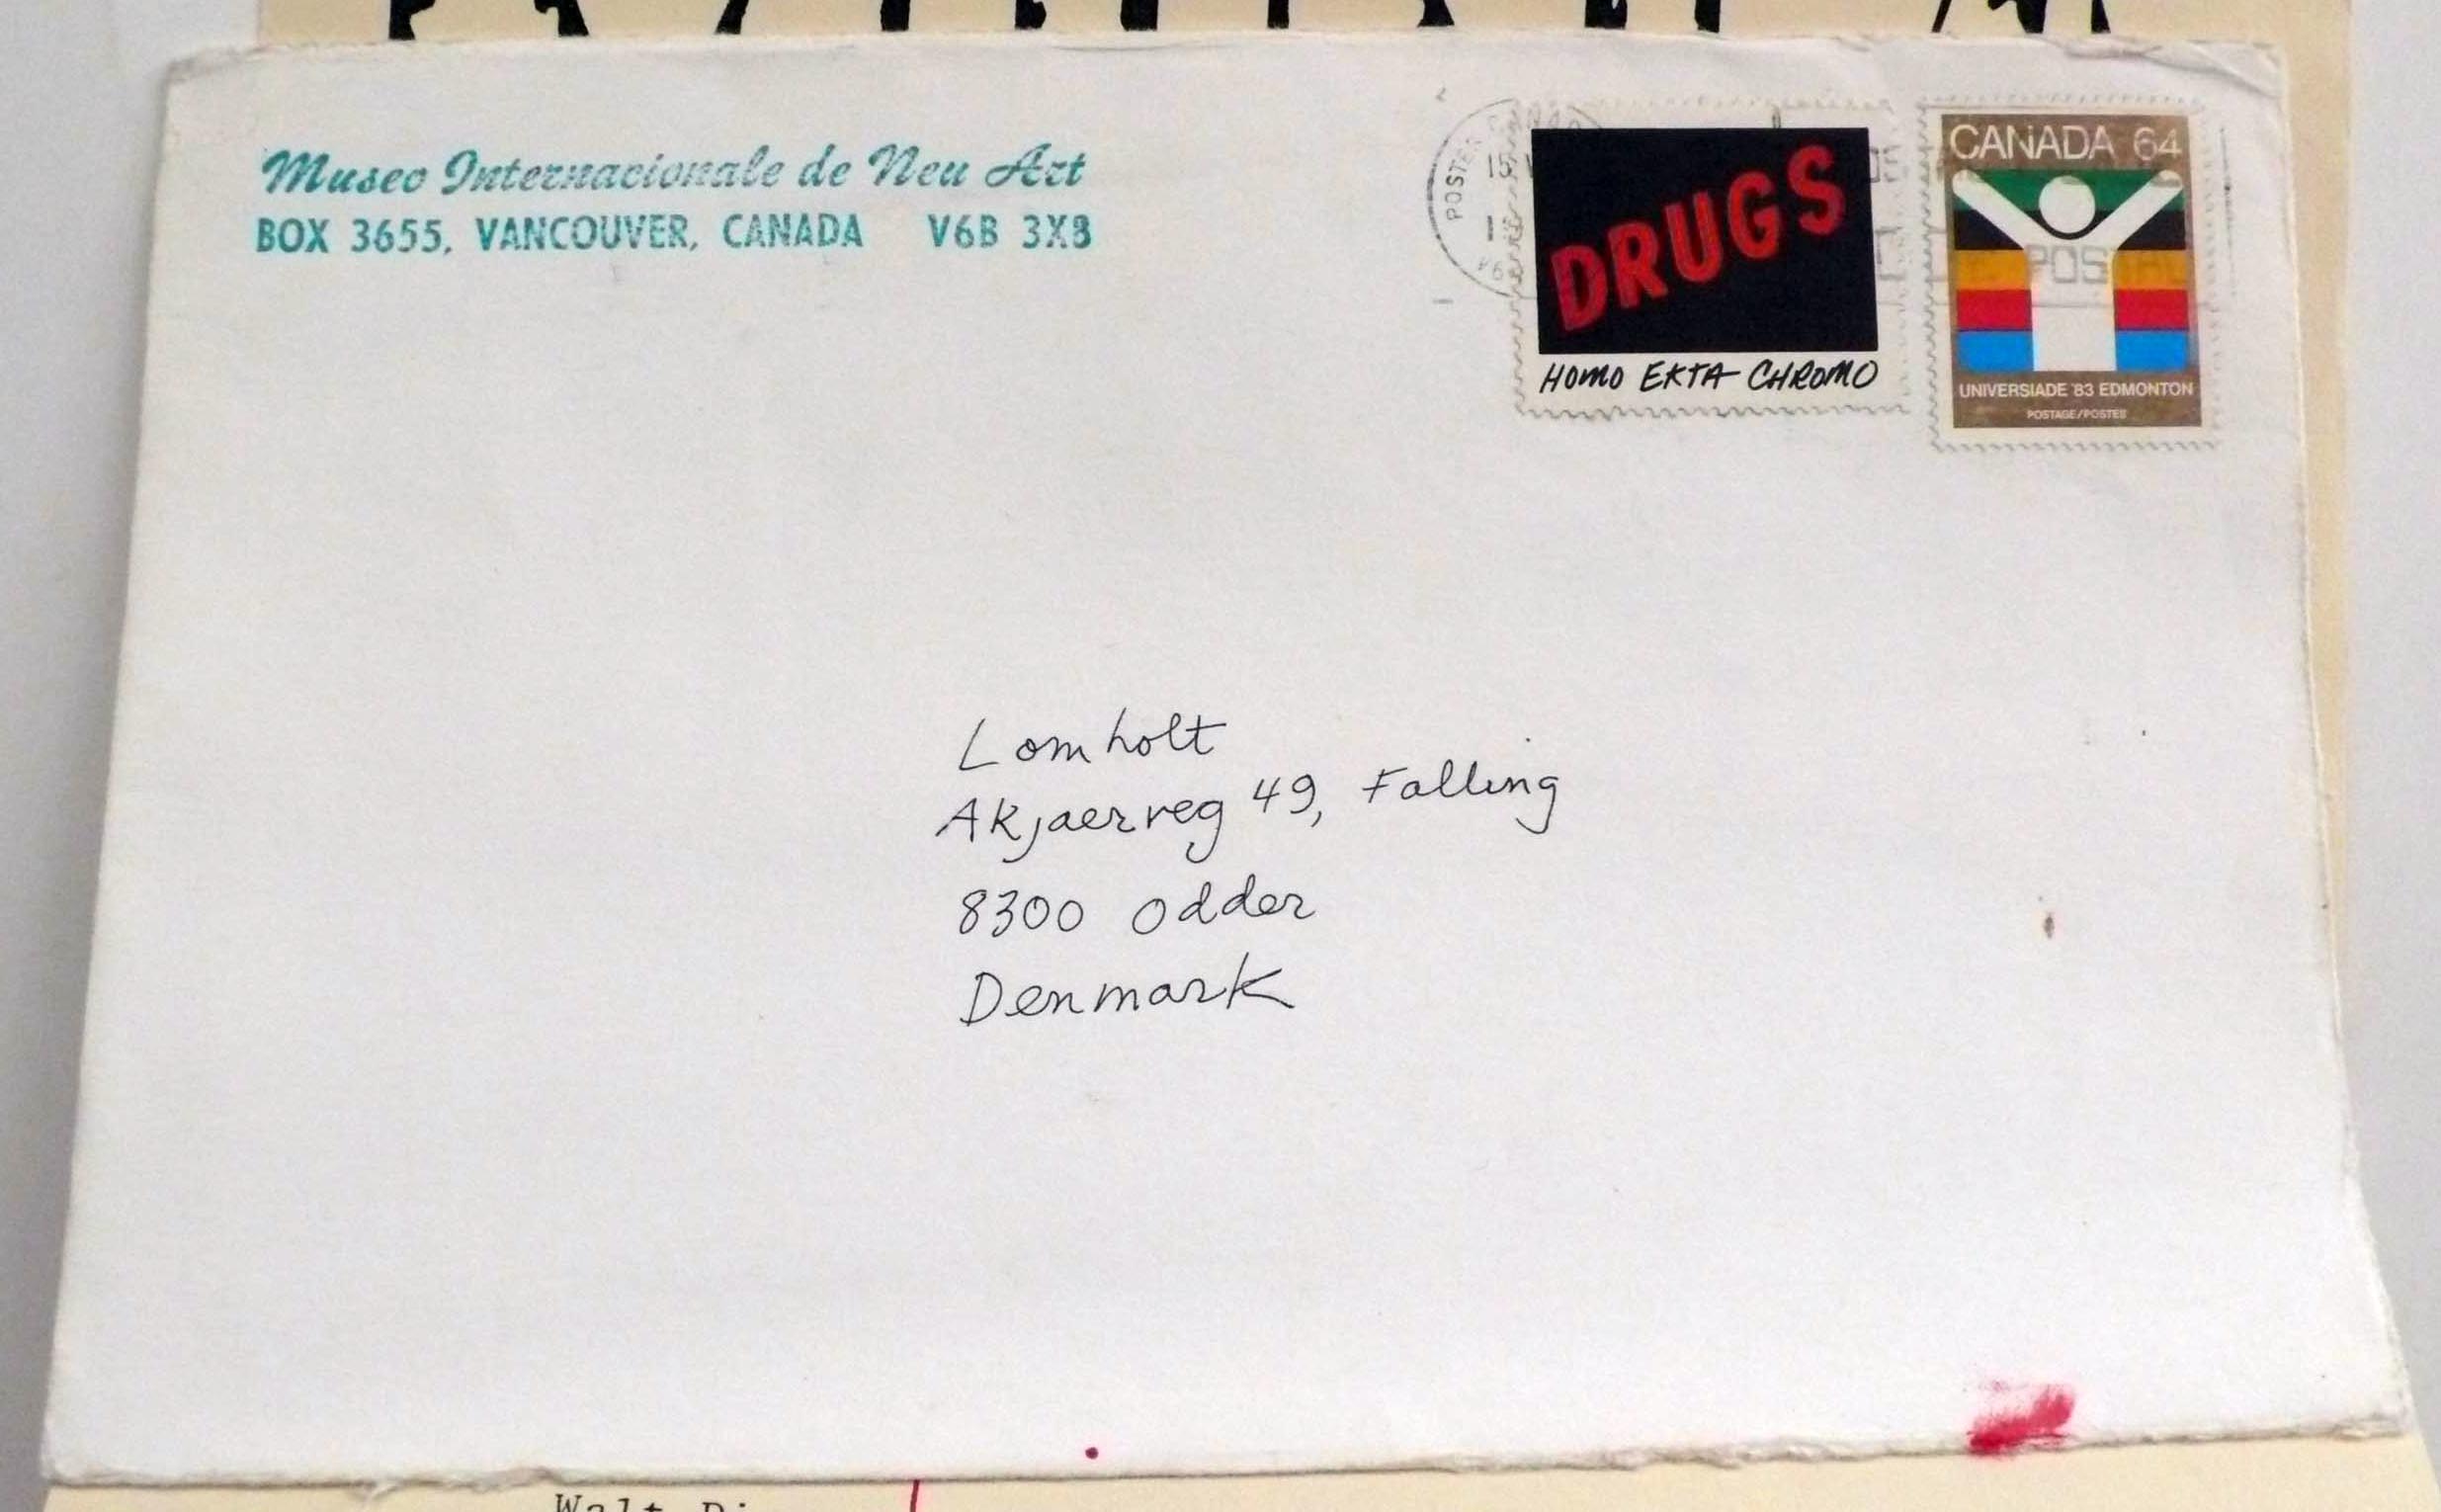 Museo Internacionale de Neu Art
BOX 3655, VANCOUVER, CANADA V6B 3X8
DRUGS
HOMO EKTA CHROMO
CANADA 64
UNIVERSIADE '83 EDMONTON
POSTAGE/POSTES
Lomholt
Akjaerveg 49, Falling
8300 Odder
Denmark
Walt